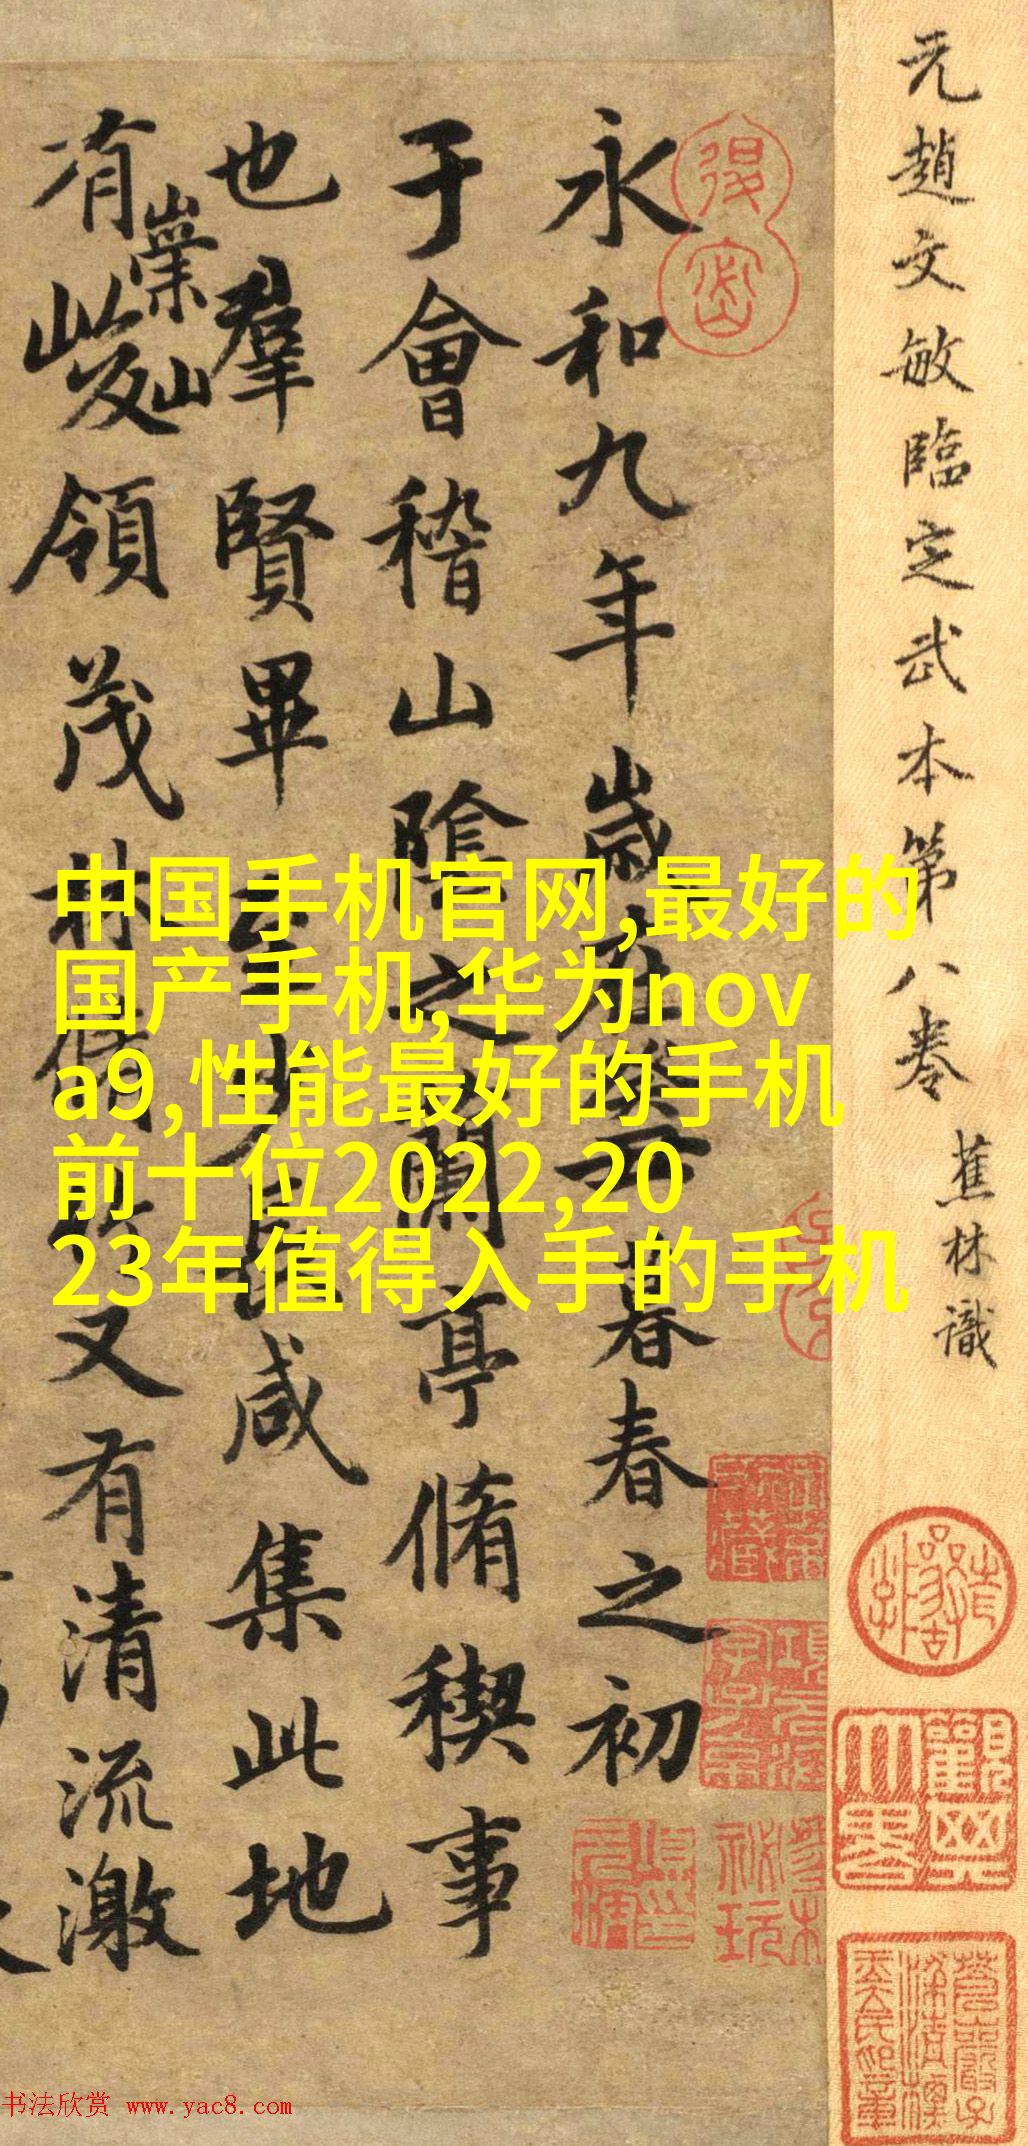 元趙文敏臨定武本第八卷
蕉林識
永和九年歲在癸丑暮春之初
于會稽山陰之蘭亭脩稧事
也羣賢畢至少長咸集此地
有崇山
峻領茂林脩竹又有清流激
中国手机官网,最好的
国产手机,华为nov
a9,性能最好的手机
前十位2022,20
23年值得入手的手机
书法欣赏 www.yac8.com